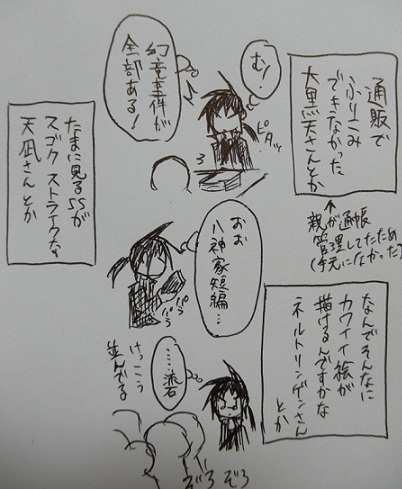 通販で
ふりこみ
できなかった
大黒天さんとか
親が通帳
管理してたため
(手元になかった)
むっ!
ピタッ
幻童事件が
全部ある!
たまに見るSSが
スゴク ストライクな
天凪さんとか
おお
八神家短編…
ぱら
ぱら
なんでそんなに
カワイイ絵が
描けるんですかな
ネルトリンゲンさん
とか
……流石
けっこう
並んでる
ぞろ
ぞろ